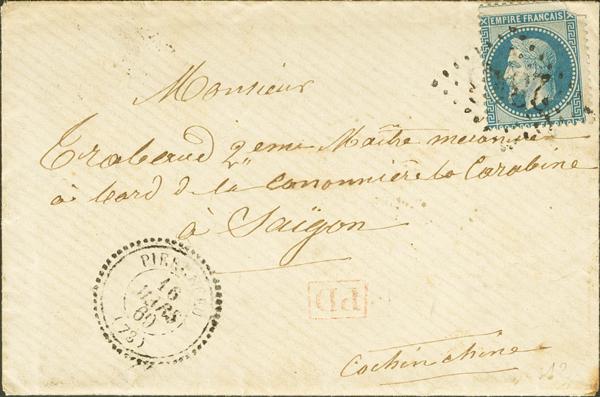 EMPIRE FRANÇAIS
Monsieur
Trabaud 2eme Maître mécanicien
à bord de la canonnière la Carabine
à Saïgon
16
MARS
69
(78)
PD
Cochinchine